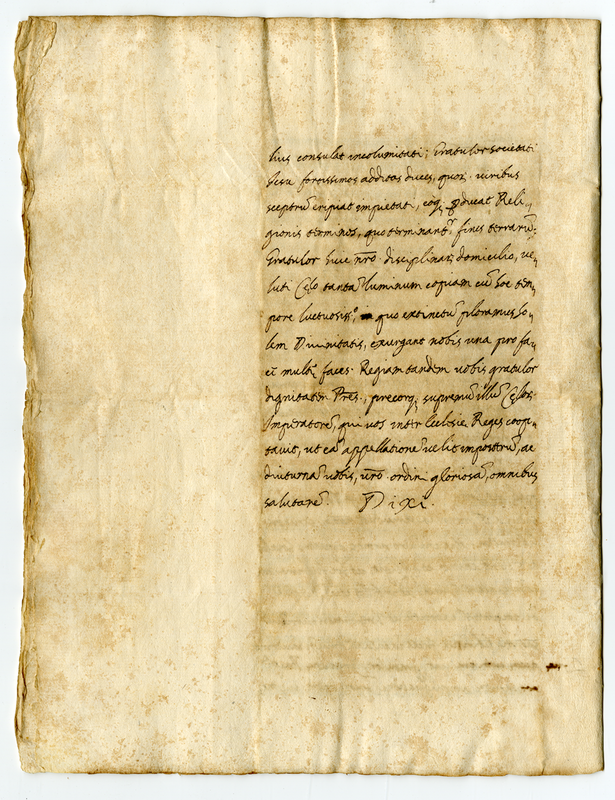 hius consulat incolumitati; Gratulor societati
Jesu fortissimos additos duces, quoꝝ. viribus
sceptrũ eripiat impietati, eoq; ꝓducat Reli„
gionis terminos, quo terminantᷣ fines terrarũ.
Gratulor huic nr̃o disciplinaꝝ domicilio, ve„
luti Cęlo tantã luminum copiam cũ hoc tem„
pore luctuosissᵒ, quo extinctũ ploramus so„
lem Divinitatis, exurgant nobis una pro fa„
cẽ multę faces. Regiam tandem vobis gratulor
dignitatem Prẽs, precorq; supremũ illũ Cęlor.
Imperatorẽ, qui vos inter Ecclesię Reges coop„
tavit, ut eã appellationẽ velit impostrũ, ac
diuturnã vobis, nr̃o ordini gloriosã, omnibus
salutarẽ. Dixi.